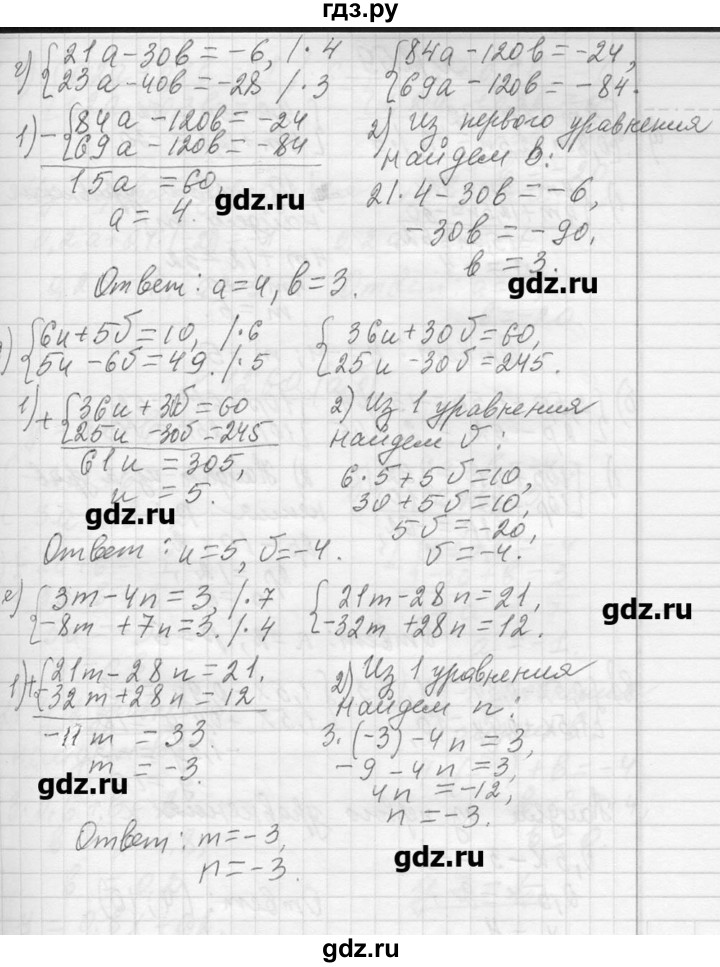 гдз.ру
г) {21a - 30в = -6, /·4
{23a - 40в = -28 /·3
{84a - 120в = -24,
{69a - 120в = -84.
1) - {84a - 120в = -24
{69a - 120в = -84
15a = 60,
a = 4.
2) Из первого уравнения
найдем в:
21·4 - 30в = -6,
-30в = -90,
в = 3.
gdz.ru
gdz.ru
Ответ: a=4, в=3.
) {6u + 5б = 10, /·6
{5u - 6б = 49. /·5
{36u + 30б = 60,
{25u - 30б = 245.
1) + {36u + 30б = 60
{25u - 30б = 245
61u = 305,
u = 5.
gdz.ru
2) Из 1 уравнения
найдем б:
6·5 + 5б = 10,
30 + 5б = 10,
5б = -20,
б = -4.
Ответ: u=5, б=-4.
е) {3m - 4n = 3, /·7
{-8m + 7n = 3. /·4
{21m - 28n = 21,
{-32m + 28n = 12.
gdz.ru
1) + {21m - 28n = 21,
{-32m + 28n = 12
-11m = 33.
m = -3.
gdz.ru
2) Из 1 уравнения
найдем n:
3·(-3) - 4n = 3,
-9 - 4n = 3,
4n = -12,
n = -3.
Ответ: m = -3,
n = -3.
gdz.ru
gdz.ru